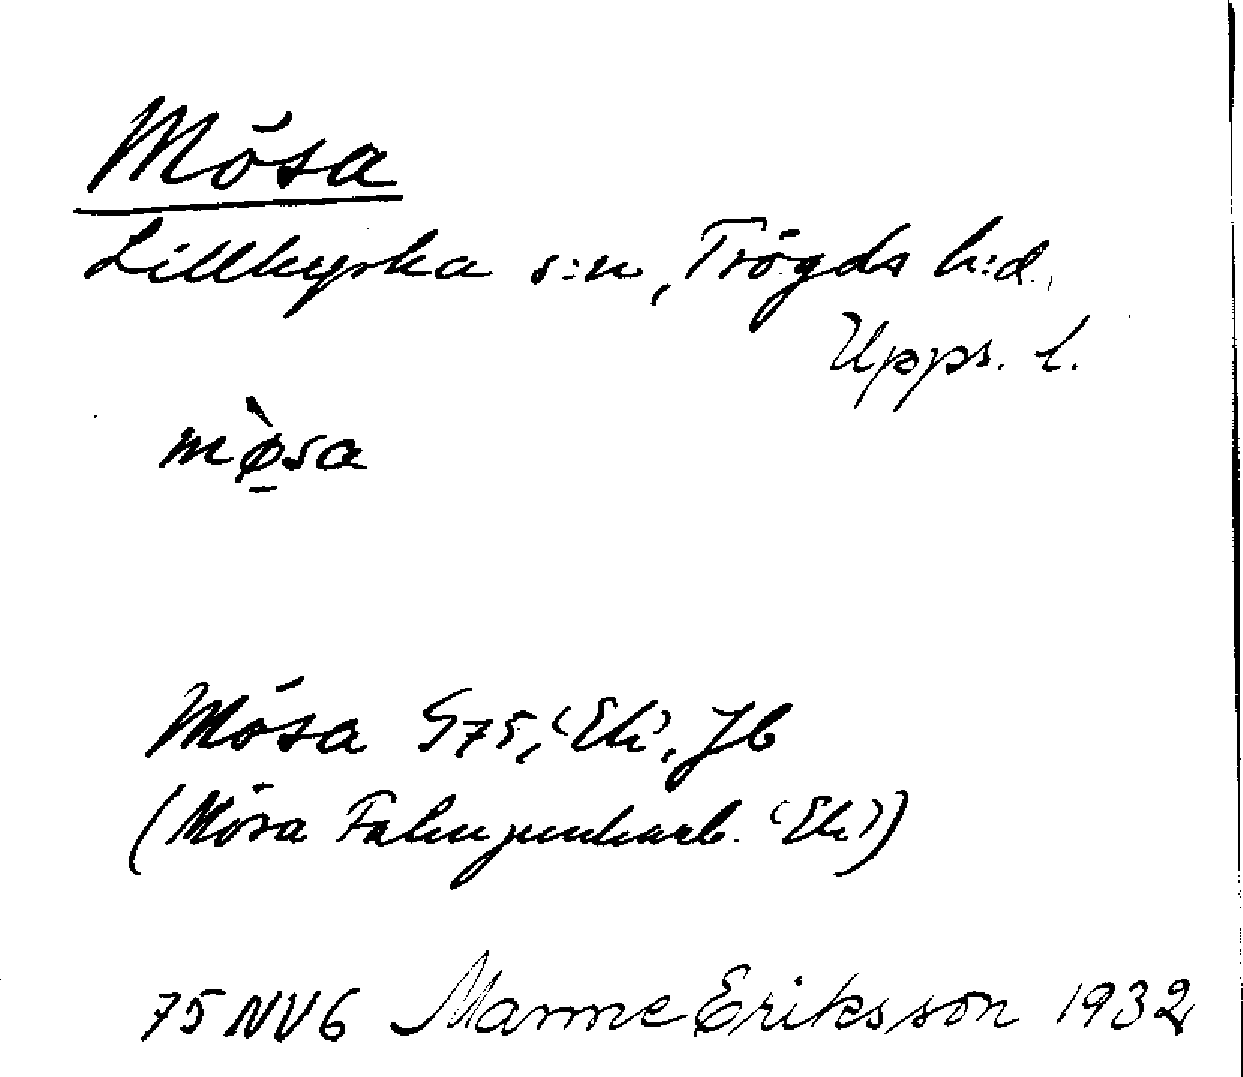 Mösa
Lillkyrka s:n, Trögds h:d.
Upps. l.
mø̀sa
Mösa G75, (Ek), Jb
(Mösa Fahnjunkarb. (Ek))
75 NV6 Manne Eriksson 1932